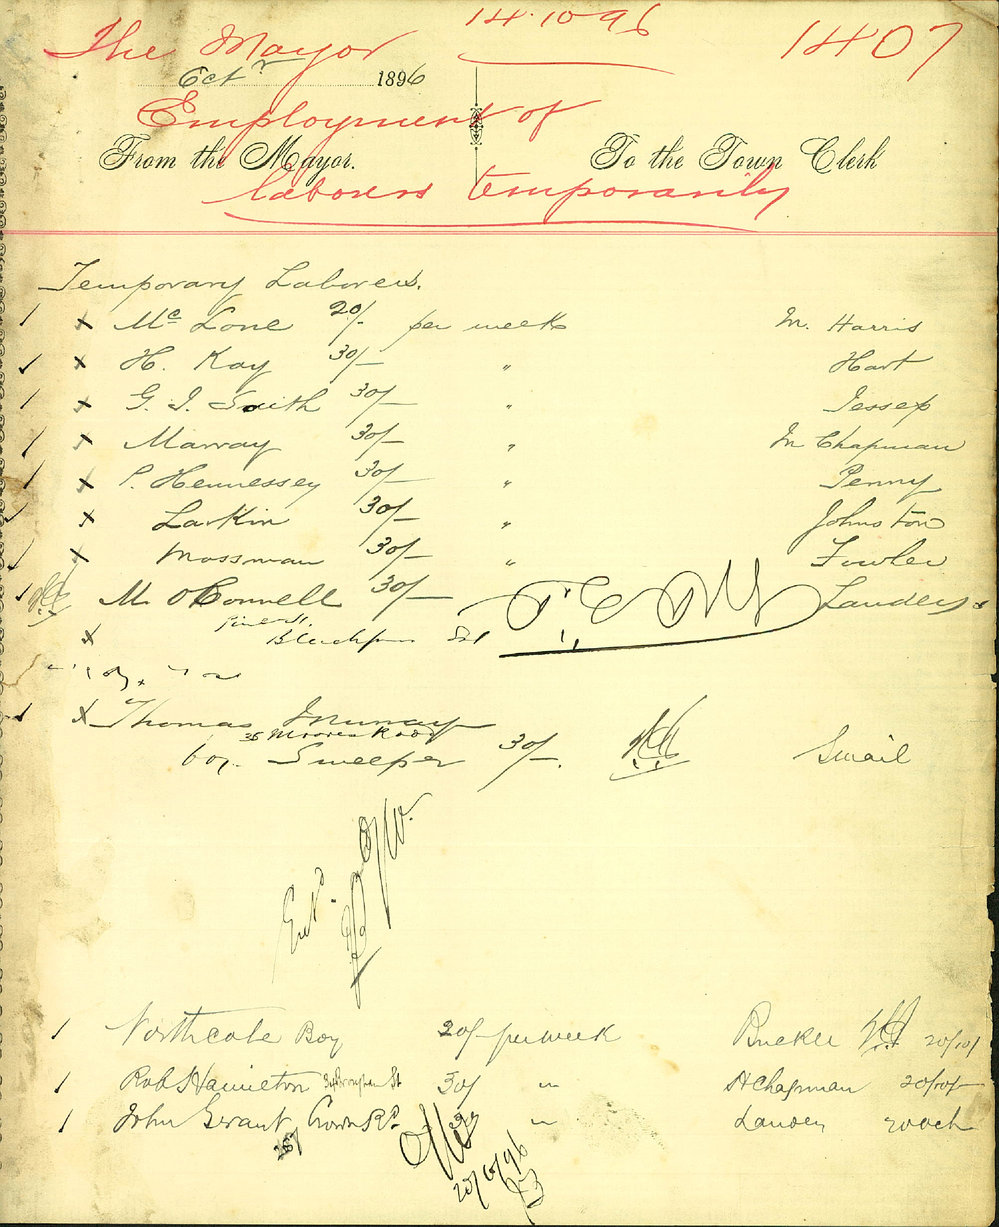 The Mayor 14.10.96 1407
Octr 1896
Employment of
From the Mayor. To the Town Clerk
laborers temporarily
Temporary Laborers.
Mc Lone 20/- per week M. Harris
H. Kay 30/- " Hart
G. J. Smith 30/- " Jessep
Marray 30/- " M Chapman
P. Hennessey 30/- " Penny
Larkin 30/- " Johnston
Mossman 30/- " Fowler
M. O'Connell 30/- Lauder
St
Thomas Murray
35 Moores Road
boy Sweeper 30/-. Smail
Entd.
Northcote Boy 20/- per week Bucker 20/10/
Rob Hamilton St 30/ " H Chapman 20/10/-
John Grant Crown Rd. 30/ " Lauder
20/10/96